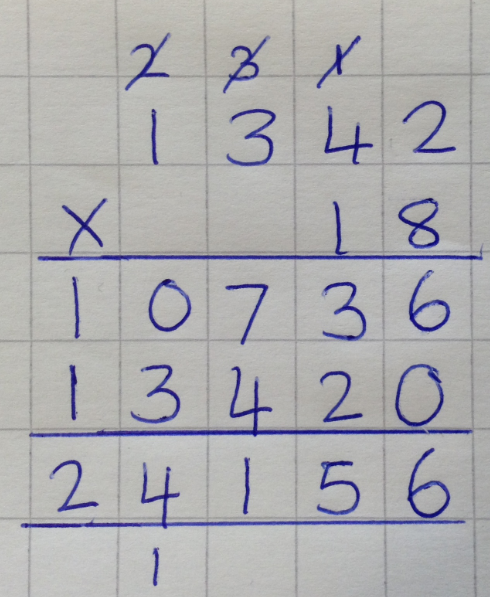 2 3 1
1 3 4 2
X 1 8
1 0 7 3 6
1 3 4 2 0
2 4 1 5 6
1